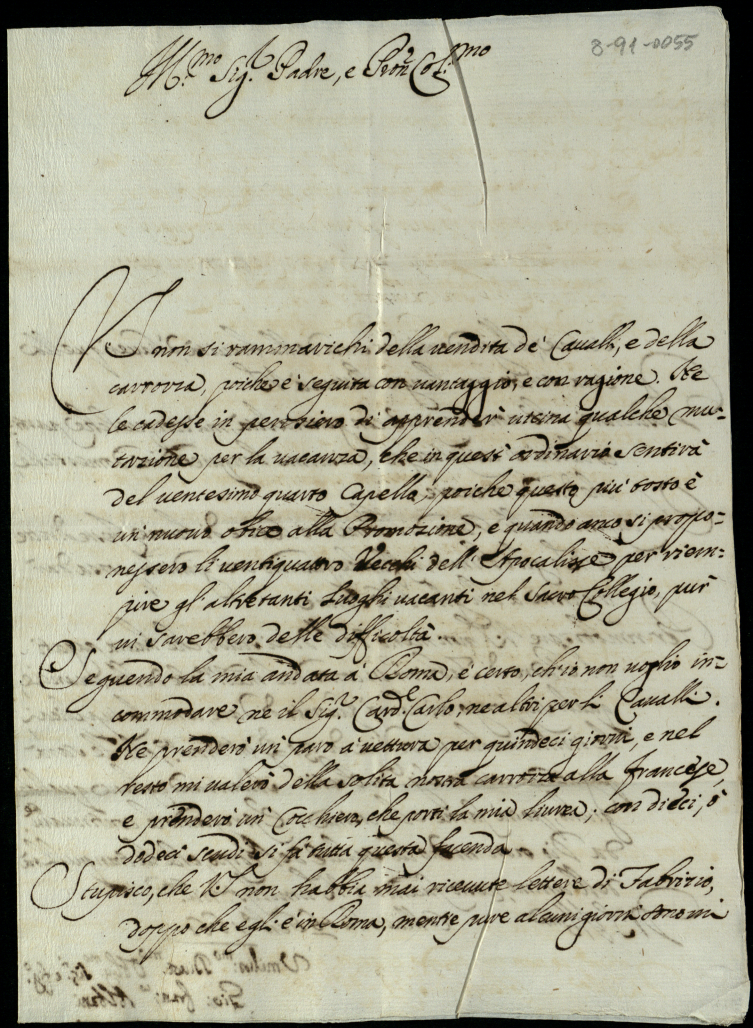 8-91-0055
Ill.mo Sig.r Padre, e Pron Col.mo
VS non si rammarichi della vendita de' Cavalli, e della
carrozza, poiche è seguita con vantaggio, e con ragione. Ne
le cadesse in pensiero di apprender vicina qualche mu-
tazione per la vacanza, che in quest' ordinario sentirà
del ventesimo quarto Capello, poiche questo più tosto è
un nuovo obice alla Promozione, e quando anco si propo-
nessero li ventiquattro Vecchi dell' Apocalisse per riem-
pire gl' altretanti luoghi vacanti nel Sacro Collegio, pur
vi sarebbero delle difficoltà.
Seguendo la mia andata à Roma, è certo, ch'io non voglio in-
commodare ne il Sig.r Card.e Carlo, ne altri per li Cavalli.
Ne prenderò un paro à vettura per quindeci giorni, e nel
resto mi valerò della solita nostra carrozza alla francese,
e prenderò un Cocchiero, che porti la mia livrea; con dieci, ò
dodeci scudi si fà tutta questa facenda.
Stupisco, che VS non habbia mai ricevute lettere di Fabrizio,
doppo che egli è in Roma, mentre pure alcuni giorni sono mi